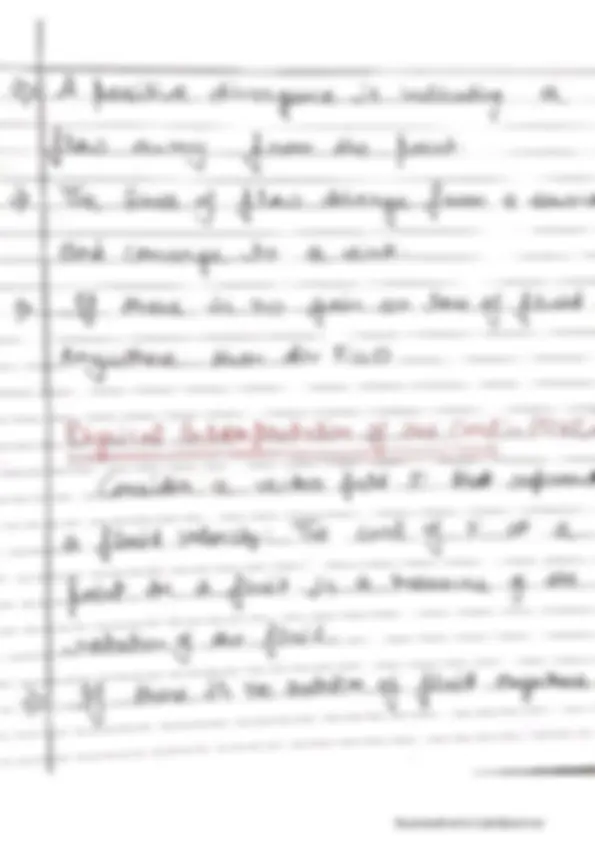 A positive divergence is indicating a
flow away from the point
The lines of flow diverge from a
and converge to a sink
If there is no gain or loss of fluid
anywhere then div F=0
Physical Interpretation of the Curl
Consider a vector field F that
a fluid velocity. The curl of F at a
point in a fluid is a measure of the
rotation of the fluid.
If there is no rotation of fluid anywhere